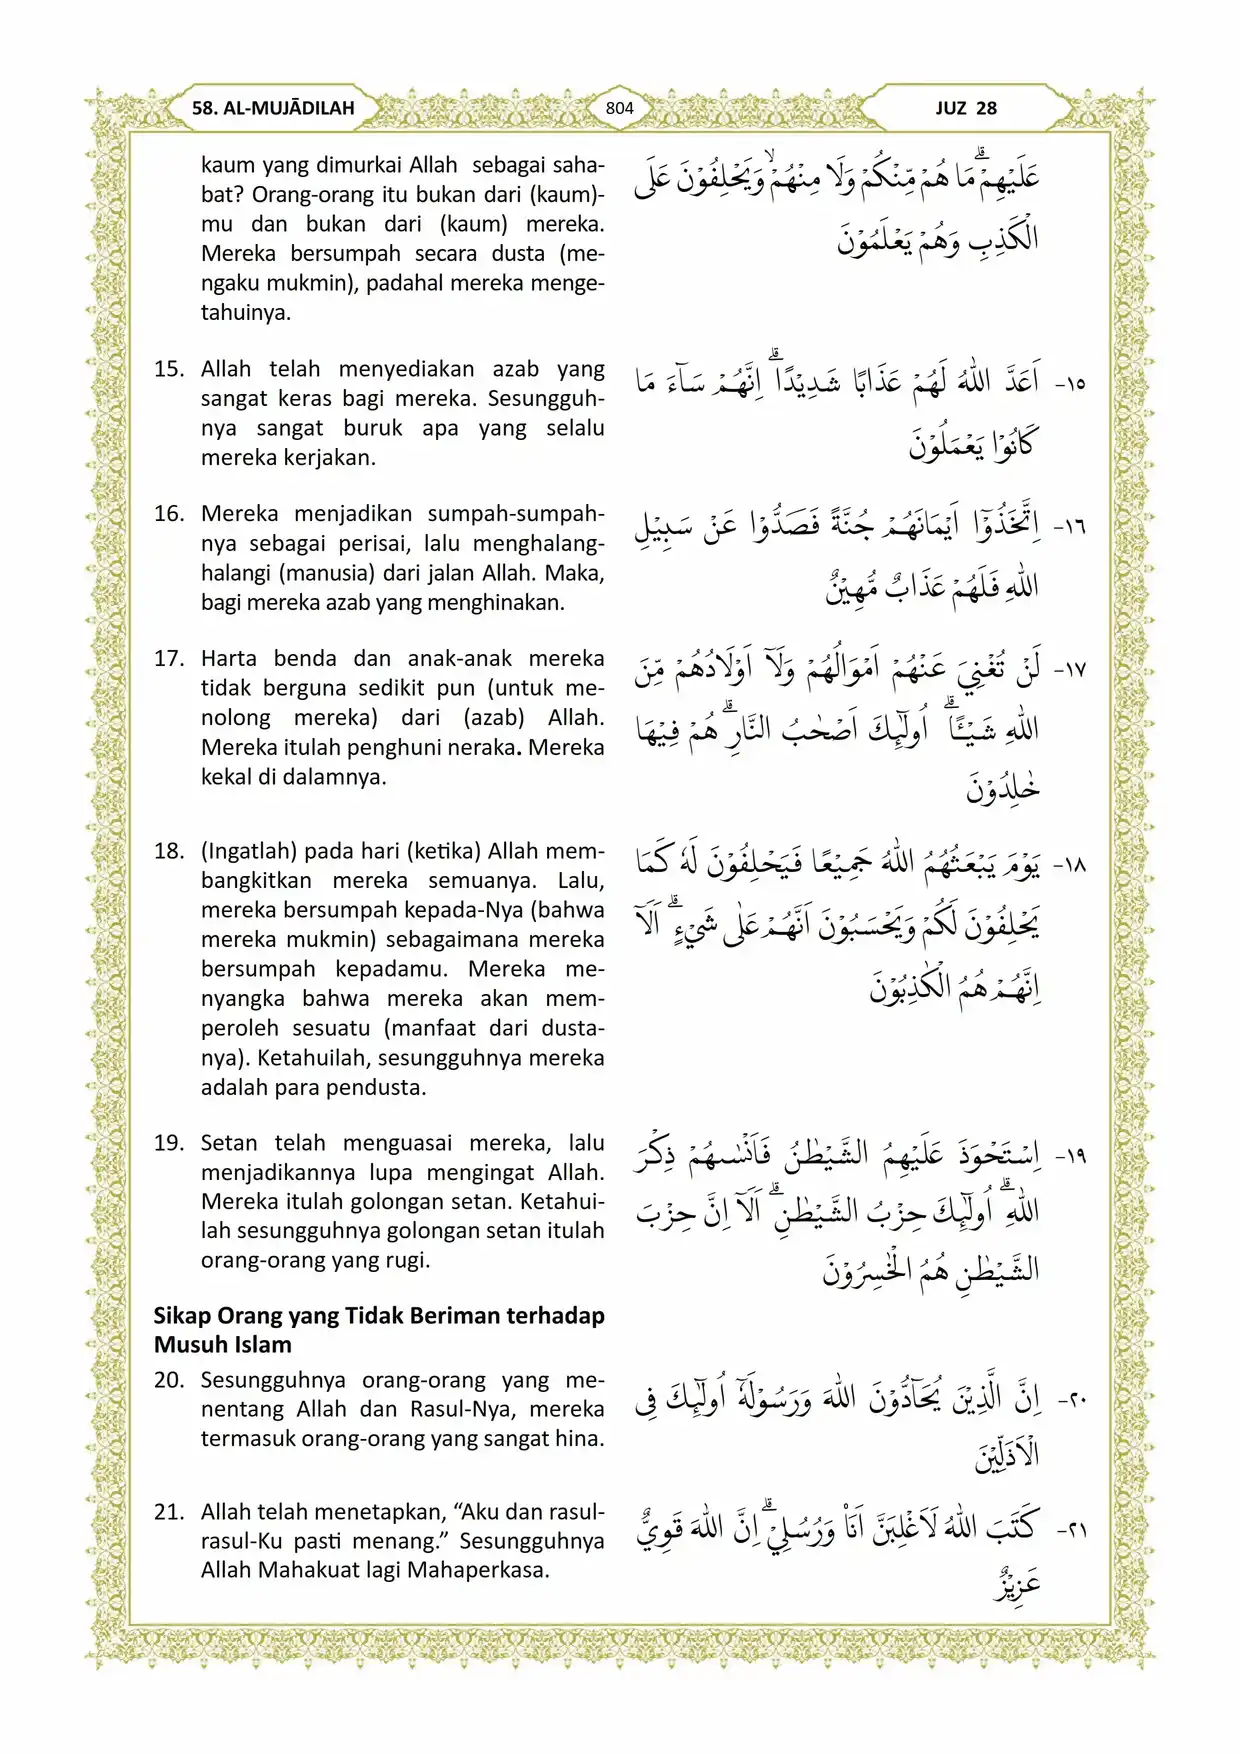 58. AL-MUJĀDILAH
804
JUZ 28
kaum yang dimurkai Allah sebagai saha-
bat? Orang-orang itu bukan dari (kaum)-
mu dan bukan dari (kaum) mereka.
Mereka bersumpah secara dusta (me-
ngaku mukmin), padahal mereka menge-
tahuinya.
عَلَيْهِمْۗ مَا هُمْ مِّنْكُمْ وَلَا مِنْهُمْۙ وَيَحْلِفُوْنَ عَلَى
الْكَذِبِ وَهُمْ يَعْلَمُوْنَ
15. Allah telah menyediakan azab yang
sangat keras bagi mereka. Sesungguh-
nya sangat buruk apa yang selalu
mereka kerjakan.
١٥- اَعَدَّ اللّٰهُ لَهُمْ عَذَابًا شَدِيْدًاۗ اِنَّهُمْ سَاۤءَ مَا
كَانُوْا يَعْمَلُوْنَ
16. Mereka menjadikan sumpah-sumpah-
nya sebagai perisai, lalu menghalang-
halangi (manusia) dari jalan Allah. Maka,
bagi mereka azab yang menghinakan.
١٦- اِتَّخَذُوْٓا اَيْمَانَهُمْ جُنَّةً فَصَدُّوْا عَنْ سَبِيْلِ
اللّٰهِ فَلَهُمْ عَذَابٌ مُّهِيْنٌ
17. Harta benda dan anak-anak mereka
tidak berguna sedikit pun (untuk me-
nolong mereka) dari (azab) Allah.
Mereka itulah penghuni neraka. Mereka
kekal di dalamnya.
١٧- لَنْ تُغْنِيَ عَنْهُمْ اَمْوَالُهُمْ وَلَآ اَوْلَادُهُمْ مِّنَ
اللّٰهِ شَيْـًٔاۗ اُولٰۤىِٕكَ اَصْحٰبُ النَّارِۗ هُمْ فِيْهَا
خٰلِدُوْنَ
18. (Ingatlah) pada hari (ketika) Allah mem-
bangkitkan mereka semuanya. Lalu,
mereka bersumpah kepada-Nya (bahwa
mereka mukmin) sebagaimana mereka
bersumpah kepadamu. Mereka me-
nyangka bahwa mereka akan mem-
peroleh sesuatu (manfaat dari dusta-
nya). Ketahuilah, sesungguhnya mereka
adalah para pendusta.
١٨- يَوْمَ يَبْعَثُهُمُ اللّٰهُ جَمِيْعًا فَيَحْلِفُوْنَ لَهٗ كَمَا
يَحْلِفُوْنَ لَكُمْ وَيَحْسَبُوْنَ اَنَّهُمْ عَلٰى شَيْءٍۗ اَلَآ
اِنَّهُمْ هُمُ الْكٰذِبُوْنَ
19. Setan telah menguasai mereka, lalu
menjadikannya lupa mengingat Allah.
Mereka itulah golongan setan. Ketahui-
lah sesungguhnya golongan setan itulah
orang-orang yang rugi.
١٩- اِسْتَحْوَذَ عَلَيْهِمُ الشَّيْطٰنُ فَاَنْسٰىهُمْ ذِكْرَ
اللّٰهِۗ اُولٰۤىِٕكَ حِزْبُ الشَّيْطٰنِۗ اَلَآ اِنَّ حِزْبَ
الشَّيْطٰنِ هُمُ الْخٰسِرُوْنَ
Sikap Orang yang Tidak Beriman terhadap
Musuh Islam
20. Sesungguhnya orang-orang yang me-
nentang Allah dan Rasul-Nya, mereka
termasuk orang-orang yang sangat hina.
٢٠- اِنَّ الَّذِيْنَ يُحَاۤدُّوْنَ اللّٰهَ وَرَسُوْلَهٗٓ اُولٰۤىِٕكَ فِى
الْاَذَلِّيْنَ
21. Allah telah menetapkan, “Aku dan rasul-
rasul-Ku pasti menang.” Sesungguhnya
Allah Mahakuat lagi Mahaperkasa.
٢١- كَتَبَ اللّٰهُ لَاَغْلِبَنَّ اَنَا۠ وَرُسُلِيْۗ اِنَّ اللّٰهَ قَوِيٌّ
عَزِيْزٌ